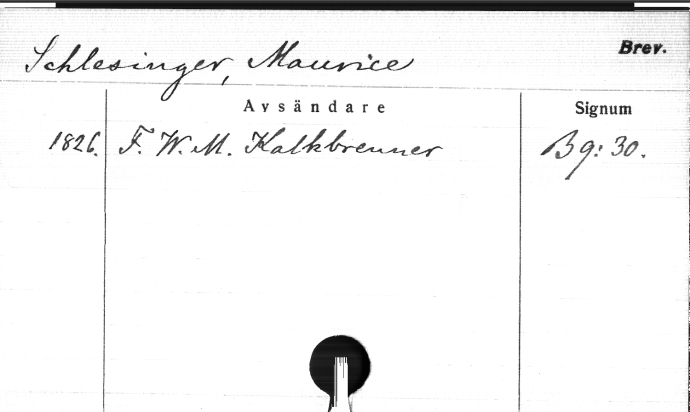 Schlesinger, Maurice
Brev.
Avsändare
Signum
1826. F. W. M. Kalkbrenner Bg: 30.